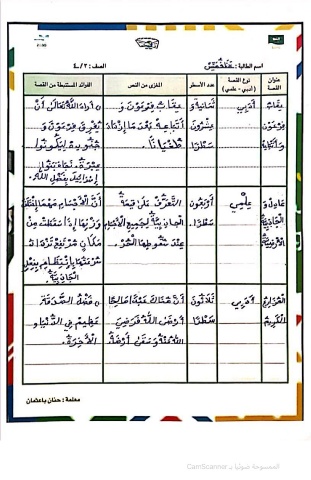 اسم الطالبة :
الصف : ٤/٢
عنوان القصة
نوع القصة (أدبي - علمي)
عدد الأسطر
المغزى من النص
الفوائد المستنبطة من القصة
عِقَابُ فِرْعَوْنَ وَأَتْبَاعِهِ
أَدَبِي
ثَمَانِيَةٌ وَ عِشْرُونَ سَطْرًا
عِقَابُ فِرْعَوْنَ وَ أَتْبَاعِهِ بَعْدَ مَا ازْدَادَ طُغْيَانًا.
أَرَادَ اللهُ تَعَالَى أَنْ يُغْرِقَ فِرْعَوْنَ وَ جُنُودِهِ لِيَكُونُوا عِبْرَةً.
عَادِلٌ وَ الْجَاذِبِيَّةُ الْأَرْضِيَّةُ
عِلْمِي
أَرْبَعُونَ سَطْرًا.
التَّعَرُّفُ عَلَى قِيمَةِ الْجَاذِبِيَّةِ لِجَمِيعِ الْأَجْسَامِ عِنْدَ سُقُوطِهَا الْحُرِّ.
أَنَّ الْأَجْسَامَ مَهْمَا اخْتَلَفَ وَزْنُهَا إِذَا سَقَطَتْ مِنْ مَكَانٍ مُرْتَفِعٍ تَزْدَادُ سُرْعَتُهَا بِانْتِظَامٍ بِفِعْلِ الْجَاذِبِيَّةِ
الْكَرِيمُ
أَدَبِي
ثَلَاثُونَ سَطْرًا
أَنَّ هُنَاكَ عَبْدًا صَالِحًا أَرْضَى اللهَ فَرَضِيَ اللهُ عَنْهُ
فَضْلُ الصَّدَقَةِ عَظِيمٌ فِي الدُّنْيَا وَ الْآخِرَةِ.
معلمة : حنان باعثمان
الممسوحة ضوئيا بـ CamScanner